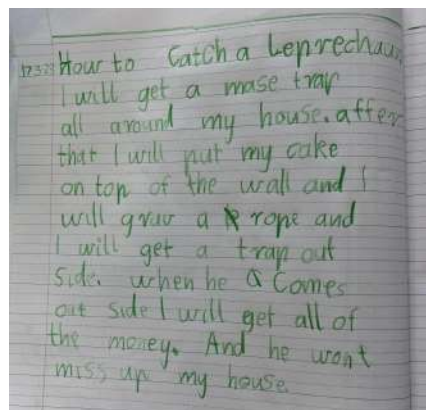 17.3.23 Hour to Catch a Leprechaun
I will get a mase trap
all around my house. after
that I will put my cake
on top of the wall and I
will grav a rope and
I will get a trap out
Side. when he Comes
out side I will get all of
the money. And he wont
miss up my house.